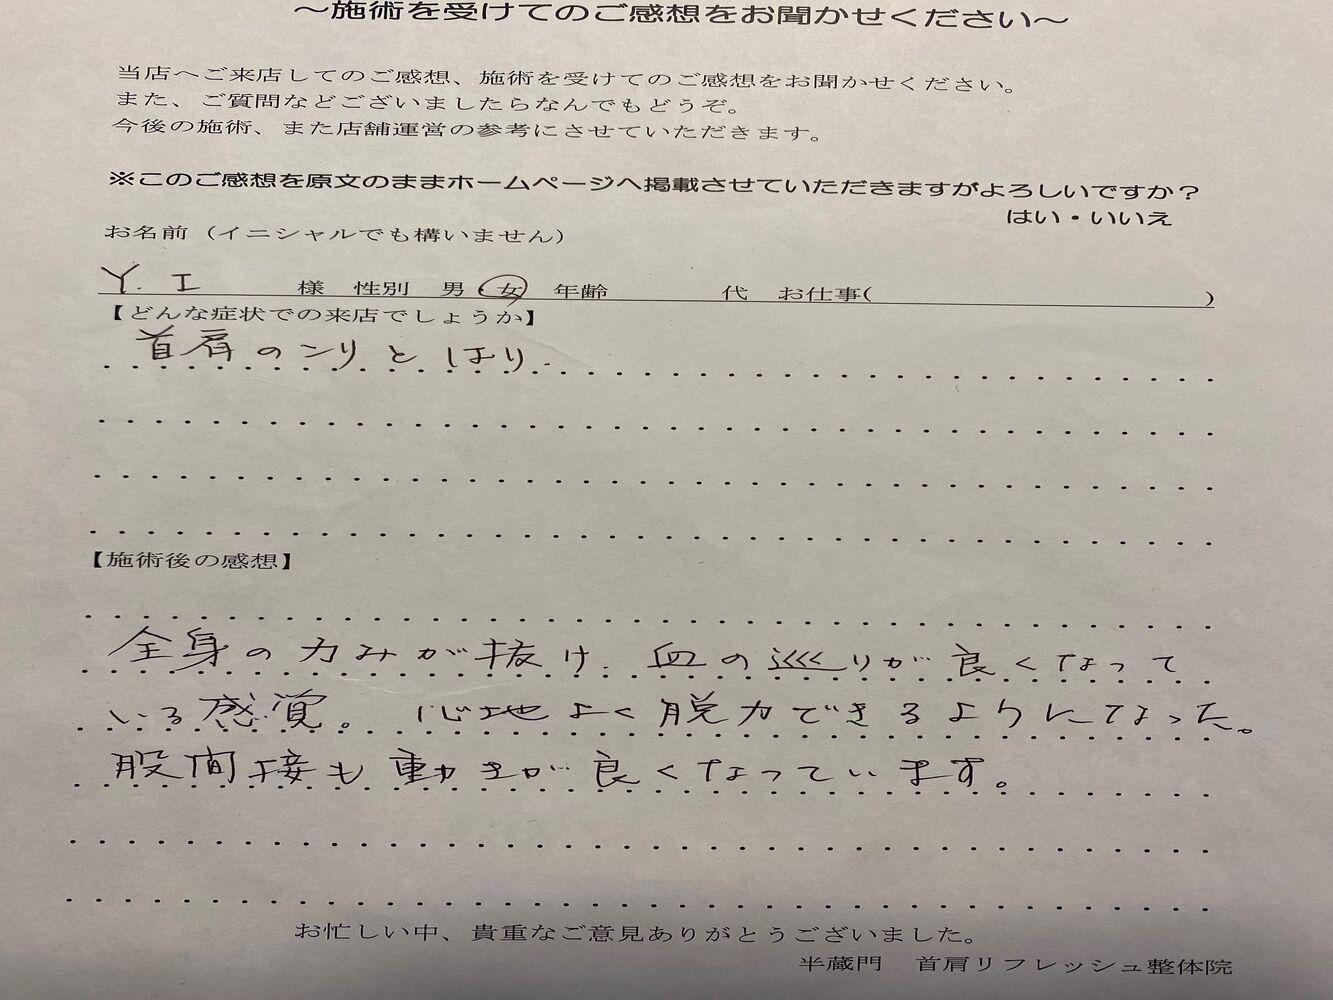 ～施術を受けてのご感想をお聞かせください～
当店へご来店してのご感想、施術を受けてのご感想をお聞かせください。
また、ご質問などございましたらなんでもどうぞ。
今後の施術、また店舗運営の参考にさせていただきます。
※このご感想を原文のままホームページへ掲載させていただきますがよろしいですか？
はい・いいえ
お名前（イニシャルでも構いません）
Y. I 様 性別 男・女 年齢 代 お仕事( )
【どんな症状での来店でしょうか】
首肩のコリとはり.
【施術後の感想】
全身の力みが抜け、血の巡りが良くなって
いる感覚。心地よく脱力できるようになった。
股間接も動きが良くなっています。
お忙しい中、貴重なご意見ありがとうございました。
半蔵門 首肩リフレッシュ整体院